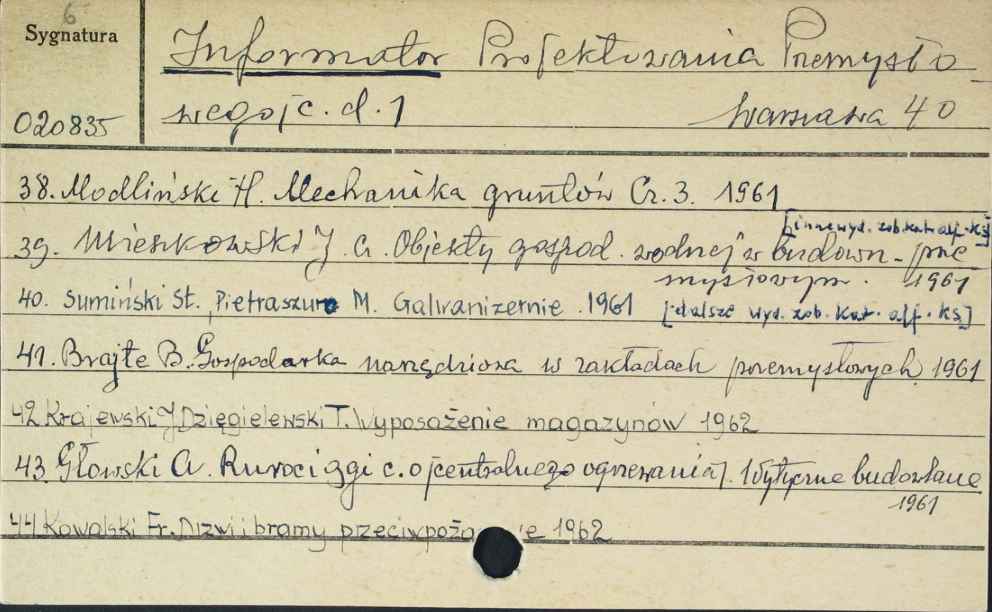 6
Sygnatura
Informator Projektowania Przemysło-
wego /c.d.1 Warszawa 40
020835
38. Modliński H. Mechanika gruntów Cz. 3. 1961
[inne wyd. zob. kat. alf. Ks]
39. Mieszkowski J. A. Objekty gospod. wodnej w budown. prze
mysłowym. 1961
40. Sumiński St., Pietraszuro M. Galvanizernie. 1961 [dalsze wyd. zob. kat. alf. Ks.]
41. Brajte B. Gospodarka narzędziowa w zakładach przemysłowych 1961
42 Krajewski J, Dzięgielewski T. Wyposażenie magazynów 1962
43. Głowski A. Rurociągi c. o /centralnego ogrzewania/. Wytyczne budowlane
1961
44 Kowalski Fr. Drzwi i bramy 1962